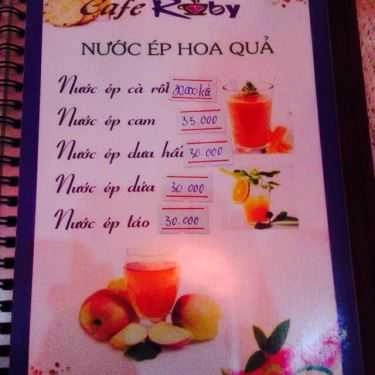 Cafe Ruby
NƯỚC ÉP HOA QUẢ
Nước ép cà rốt
Nước ép cam 35.000
Nước ép dưa hấu 30.000
Nước ép dứa 30.000
Nước ép táo 30.000